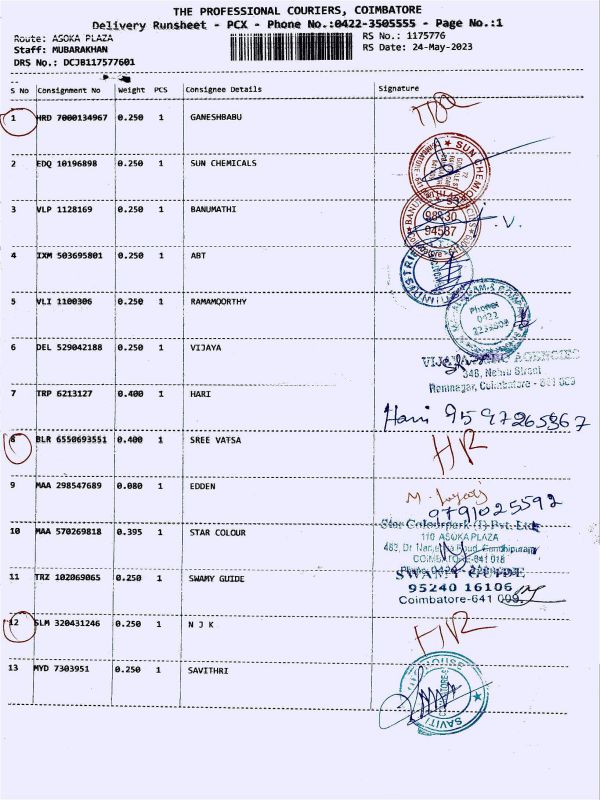 THE PROFESSIONAL COURIERS, COIMBATORE
Delivery Runsheet - PCX - Phone No.:0422-3505555 - Page No.:1
Route: ASOKA PLAZA RS No.: 1175776
Staff: MUBARAKHAN RS Date: 24-May-2023
DRS No.: DCJB117577601
S No Consignment No Weight PCS Consignee Details Signature
1 HRD 7000134967 0.250 1 GANESHBABU
2 EDQ 10196898 0.250 1 SUN CHEMICALS
SUN CHEM
3 VLP 1128169 0.250 1 BANUMATHI
98430
94587
4 IXM 503695801 0.250 1 ABT
5 VLI 1100306 0.250 1 RAMAMOORTHY
Phone:
0422
6 DEL 529042188 0.250 1 VIJAYA
AGENCIES
346, Nehru Street
Ramnagar, Coimbatore - 641 009
7 TRP 6213127 0.400 1 HARI
Hari 9597265367
8 BLR 6550693551 0.400 1 SREE VATSA
9 MAA 298547689 0.080 1 EDDEN
9791025592
10 MAA 570269818 0.395 1 STAR COLOUR
Star Colourpark (I) Pvt. Ltd
110 ASOKA PLAZA
COIMBATORE-641 018
11 TRZ 102069065 0.250 1 SWAMY GUIDE
SWAMY GUIDE
95240 16106
Coimbatore-641 009.
12 SLM 320431246 0.250 1 N J K
13 MYD 7303951 0.250 1 SAVITHRI